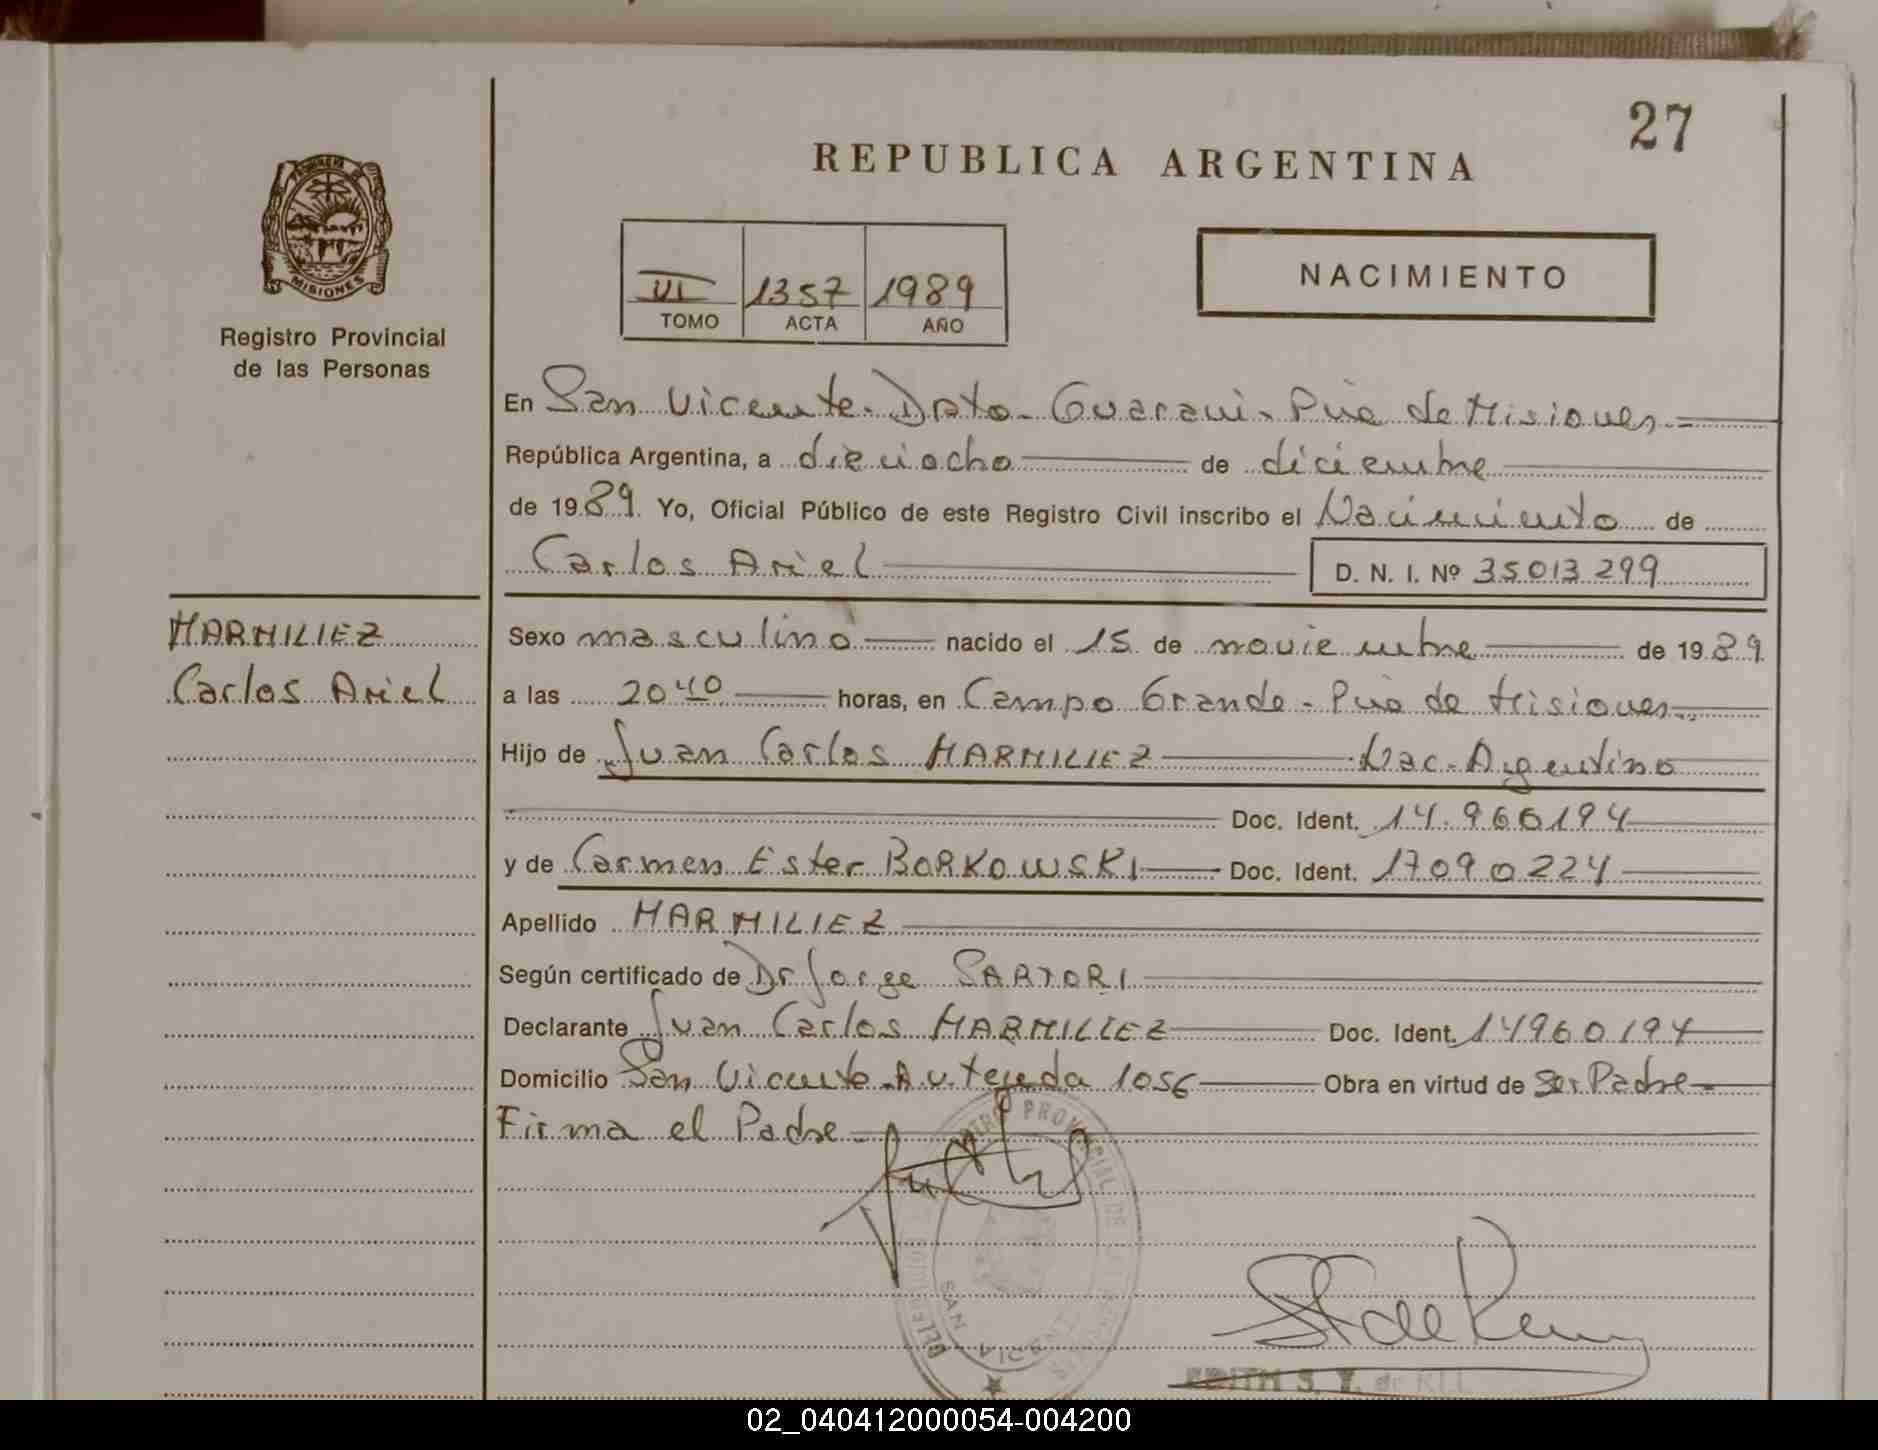 27
REPUBLICA ARGENTINA
MISIONES
Registro Provincial
de las Personas
VI 1357 1989
TOMO ACTA AÑO
NACIMIENTO
En San Vicente. Dpto. Guaraní. Pcia de Misiones.=
República Argentina, a dieciocho de diciembre
de 1989. Yo, Oficial Público de este Registro Civil inscribo el Nacimiento de
Carlos Ariel D. N. I. Nº 35013299
MARMILIEZ
Carlos Ariel
Sexo masculino nacido el 15 de noviembre de 1989
a las 20 40 horas, en Campo Grande - Pcia de Misiones
Hijo de Juan Carlos MARMILIEZ Nac. Argentino
Doc. Ident. 14.960194
y de Carmen Ester BORKOWSKI Doc. Ident. 17090224
Apellido MARMILIEZ
Según certificado de Dr Jorge SARTORI
Declarante Juan Carlos MARMILIEZ Doc. Ident. 14960194
Domicilio San Vicente. Av. Tejeda 1056 Obra en virtud de Ser Padre
Firma el Padre
PROVINCIAL DE
SAN VICENTE
EDITH S. de
02_040412000054-004200